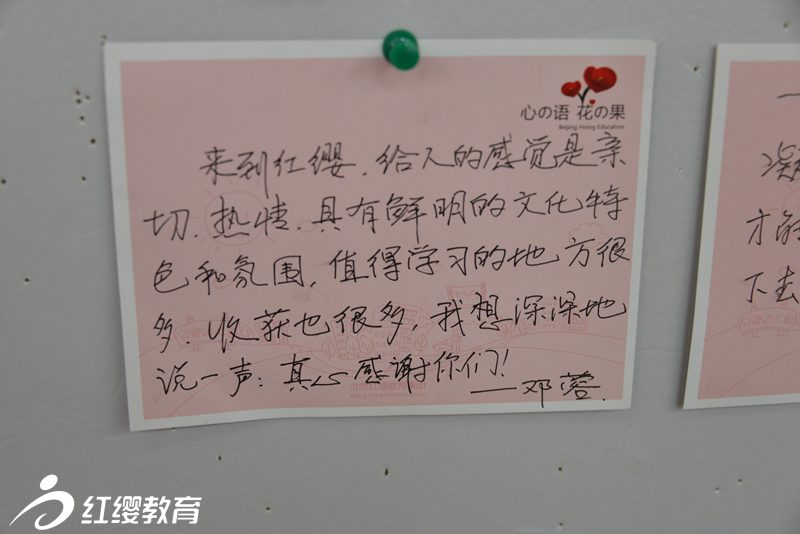 心の语 花の果
Beijing Hoing Education
来到红缨，给人的感觉是亲
切、热情，具有鲜明的文化特
色和氛围，值得学习的地方很
多，收获也很多，我想深深地
说一声：真心感谢你们！
——邓蓉.
一
凝
才能
下去
红缨教育